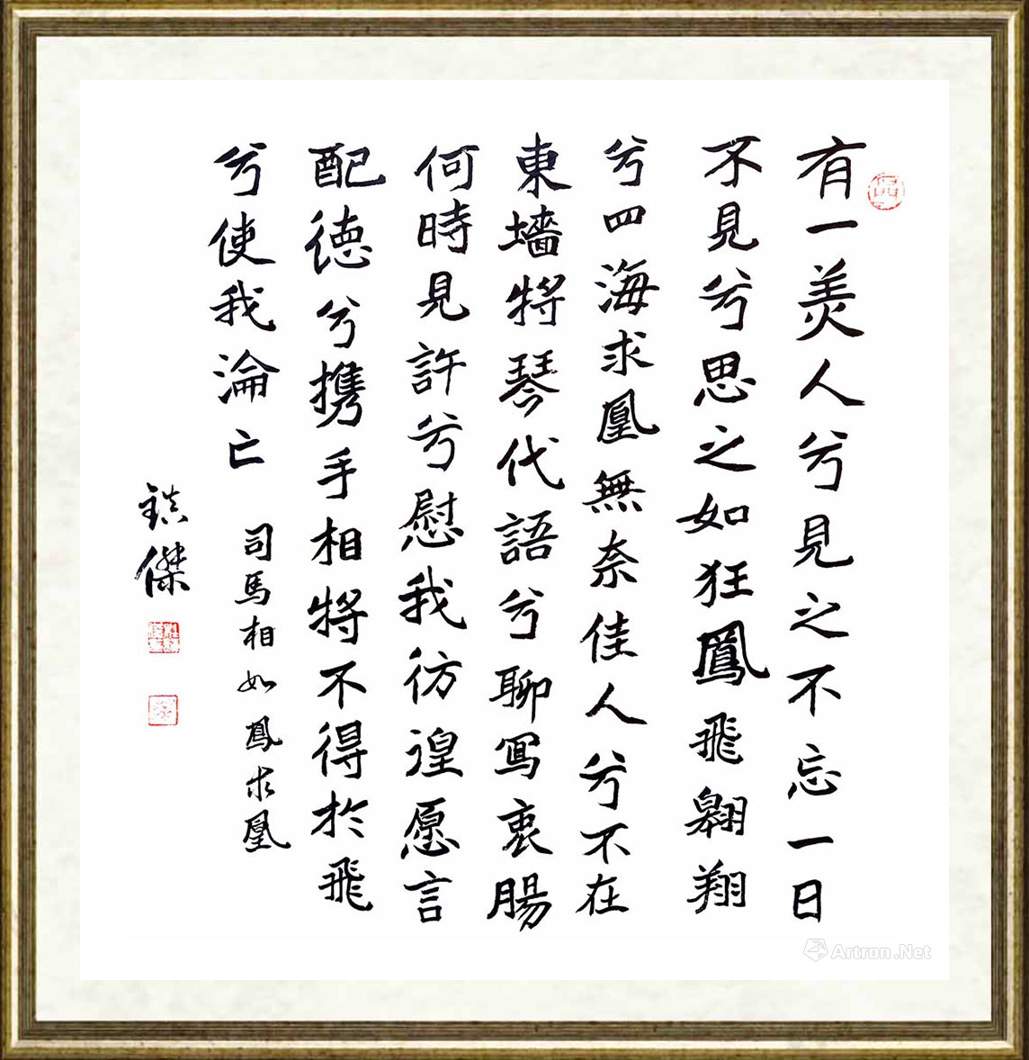 有一羙人兮見之不忘一日
不見兮思之如狂鳳飛翱翔
兮四海求凰無奈佳人兮不在
東墻将琴代語兮聊寫衷腸
何時見許兮慰我彷徨愿言
配德兮携手相将不得於飛
兮使我淪亡
司馬相如鳳求凰
鎮傑
Artron.Net